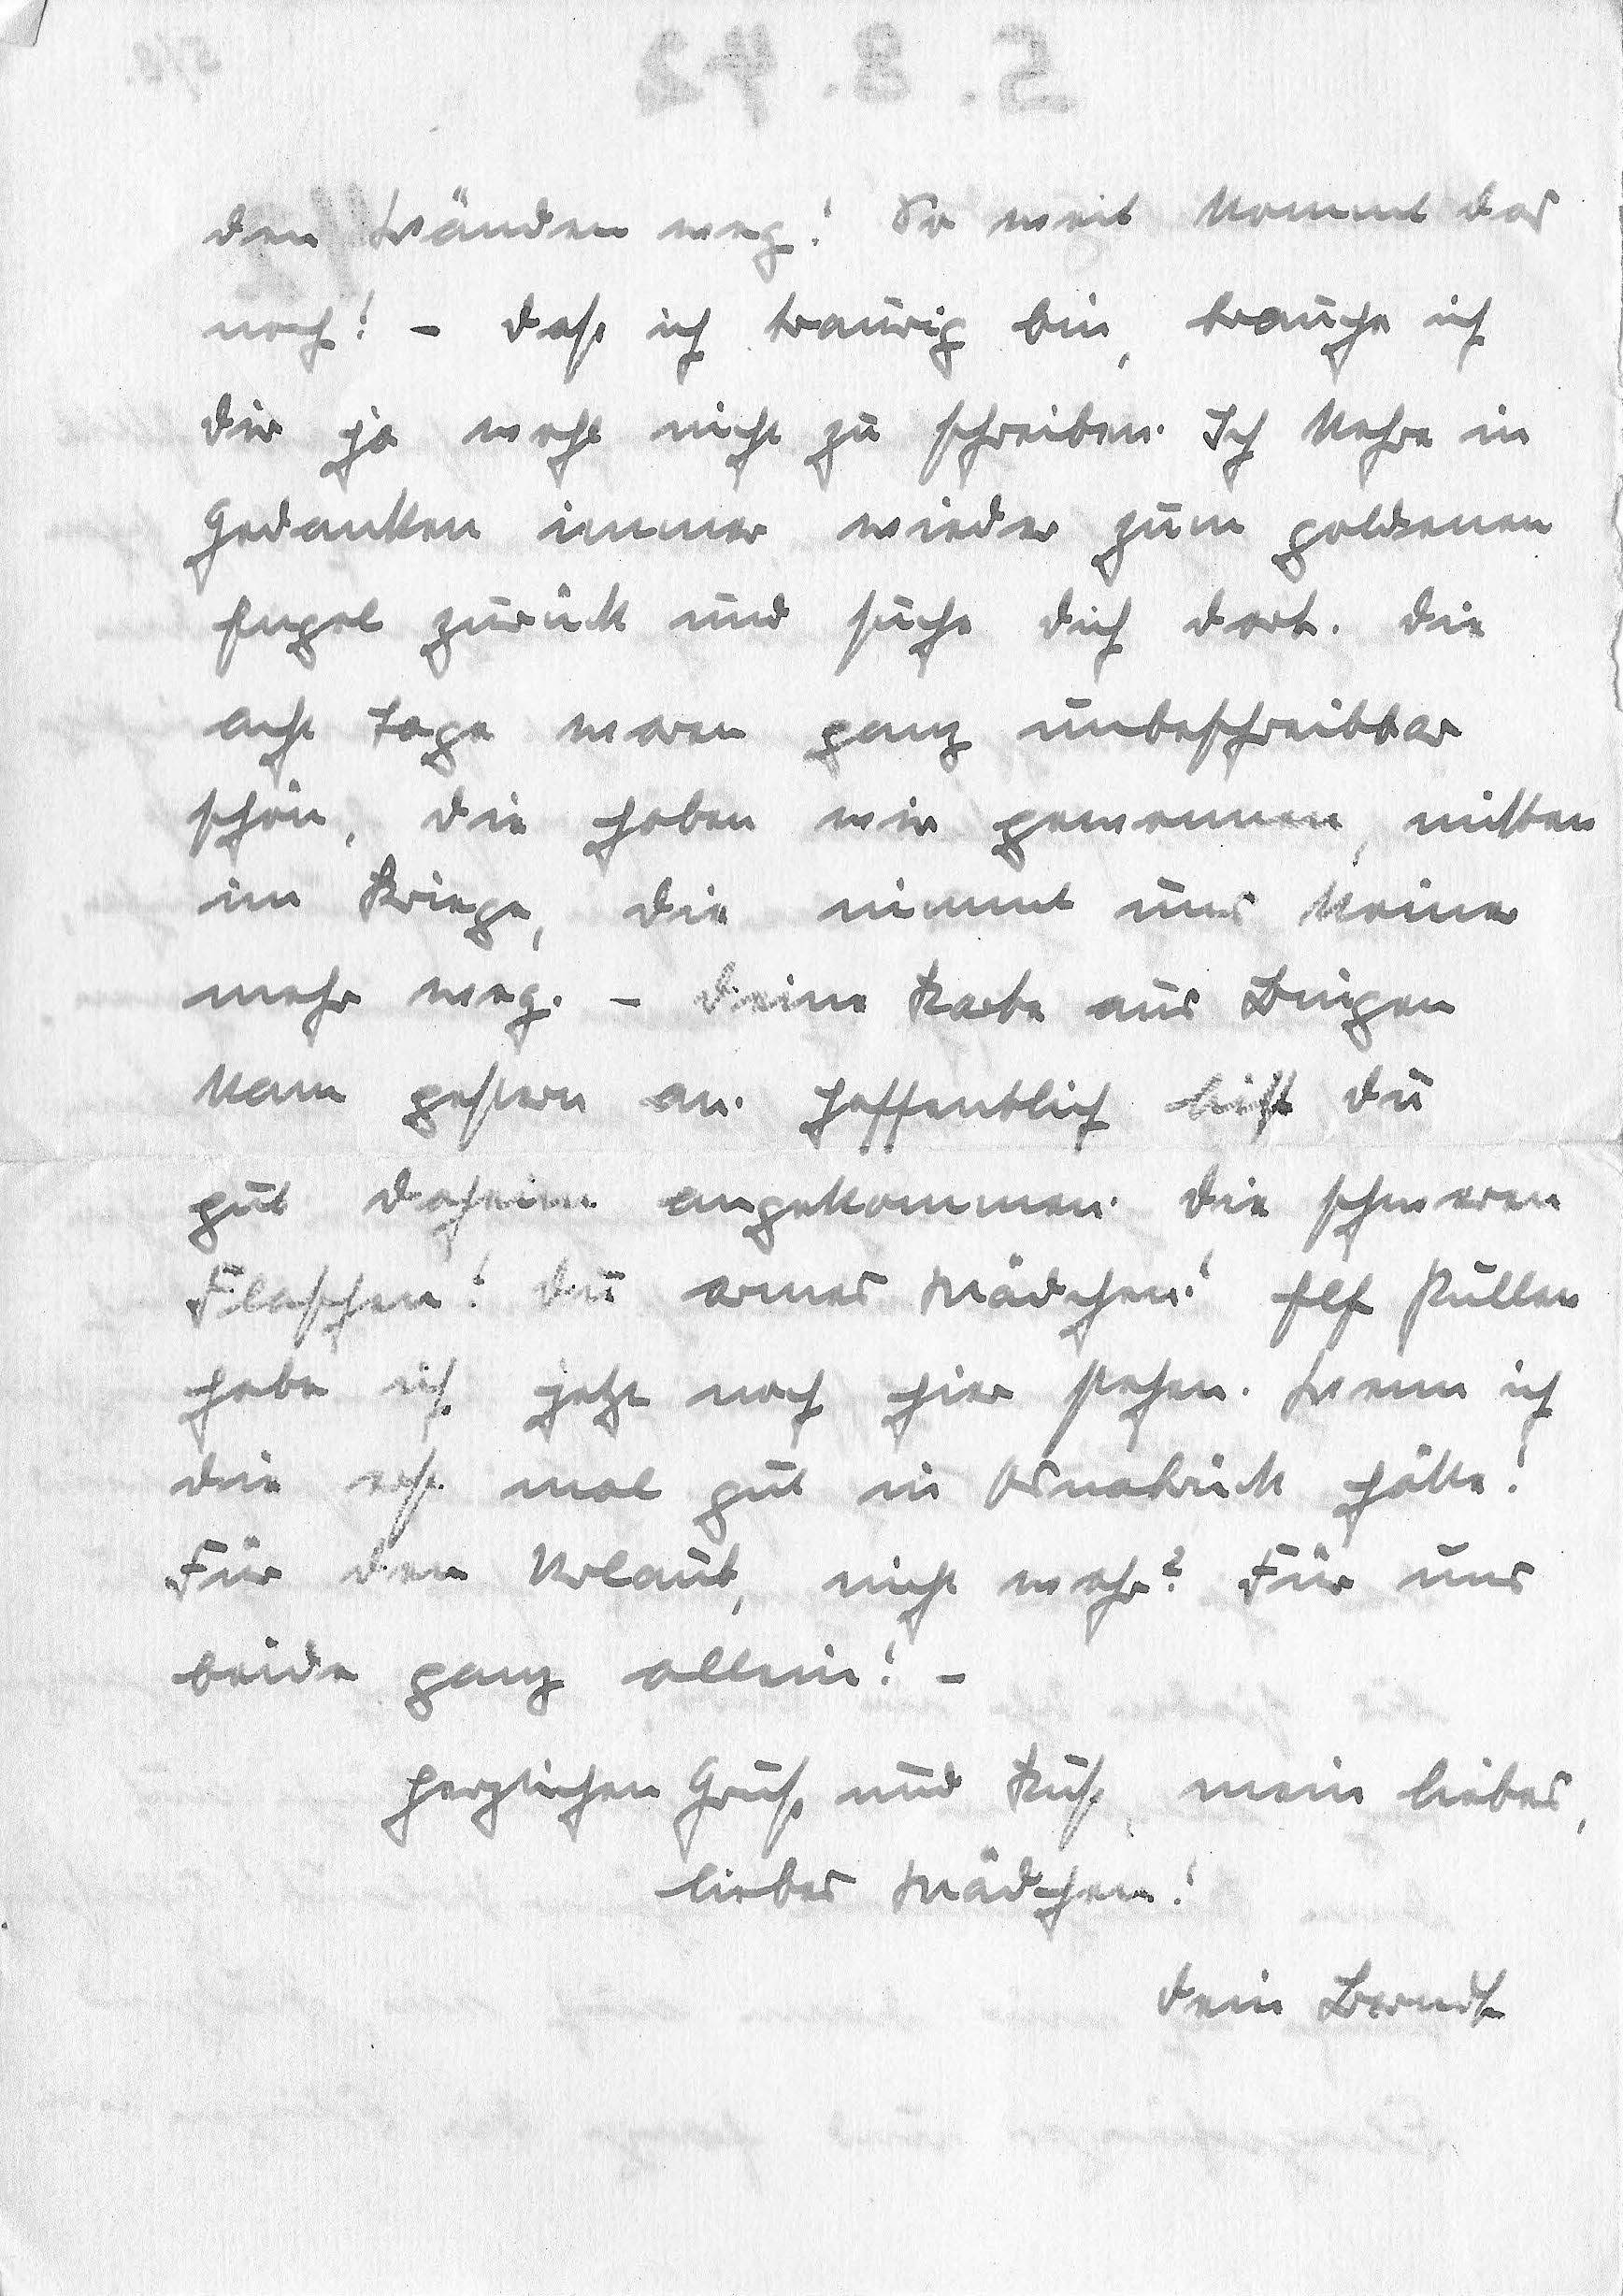 den Wänden weg! So weit kommt das
noch! – Dass ich traurig bin, brauche ich
Dir ja wohl nicht zu schreiben. Ich kehre in
Gedanken immer wieder zum goldenen
Engel zurück und suche Dich dort. Die
acht Tage waren ganz unbeschreibbar
schön, die haben wir gewonnen, mitten
im Kriege, die nimmt uns keiner
mehr weg. – Deine Karte aus Bingen
kam gestern an. Hoffentlich bist Du
gut daheim angekommen. Die schweren
Flaschen! Du armes Mädchen! Elf Pullen
habe ich jetzt noch hier stehen. Wenn ich
die erst mal gut in Osnabrück hätte!
Für den Urlaub, nicht wahr? Für uns
beide ganz allein! –
Herzlichen Gruss und Kuss, mein liebes,
liebes Mädchen!
Dein Berndt